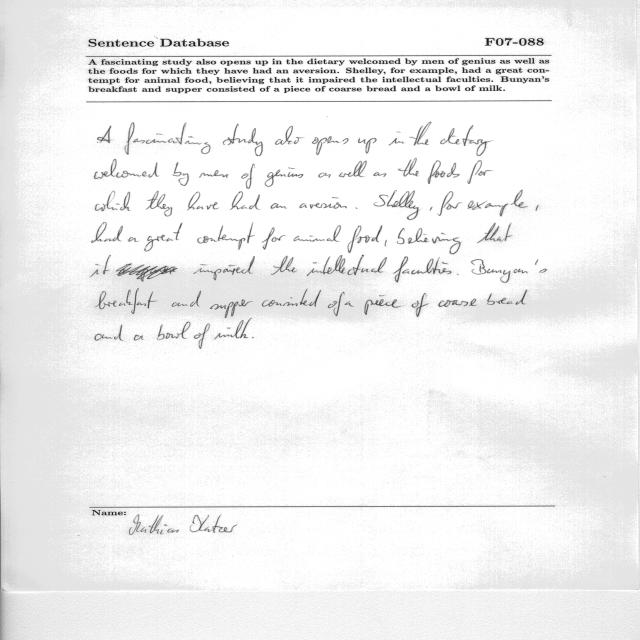 Sentence Database F07-088
A fascinating study also opens up in the dietary welcomed by men of genius as well as
the foods for which they have had an aversion. Shelley, for example, had a great con-
tempt for animal food, believing that it impaired the intellectual faculties. Bunyan's
breakfast and supper consisted of a piece of coarse bread and a bowl of milk.
A fascinating study also opens up in the dietary
welcomed by men of genius as well as the foods for
which they have had an aversion. Shelley, for example,
had a great contempt for animal food, believing that
it impaired the intellectual faculties. Bunyan's
breakfast and supper consisted of a piece of coarse bread
and a bowl of milk.
Name: